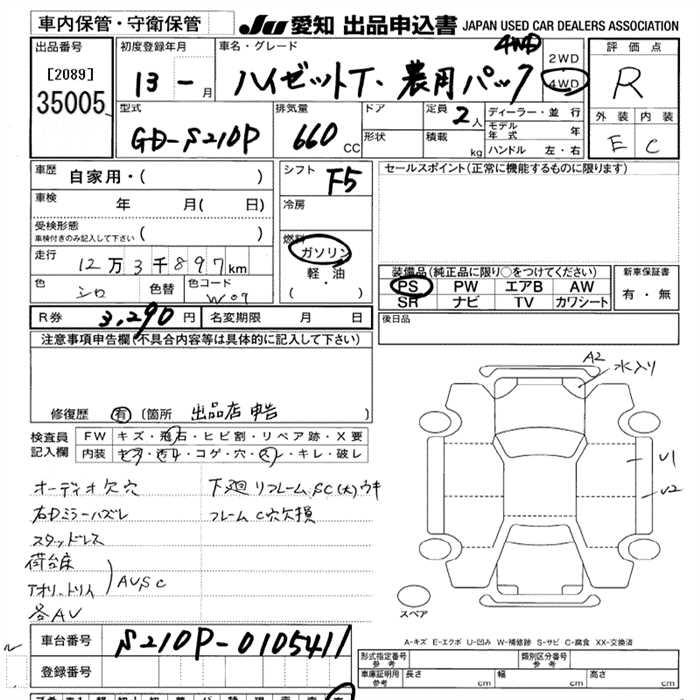 車内保管・守衛保管
JU 愛知 出品申込書 JAPAN USED CAR DEALERS ASSOCIATION
出品番号
[2089]
35005
初度登録年月
13 - 月
車名・グレード
4WD
ハイゼットT・農用パック
2WD
4WD
評価点
R
外装 内装
E C
型式
GD-S210P
排気量
660 CC
ドア
形状
定員
2人
積載
kg
ディーラー・並行
モデル年式 年
ハンドル 左・右
車歴
自家用・( )
車検
年 月( 日)
受検形態
車検付きのみ記入して下さい ( )
走行
12万3千897km
色
シロ
色替
色コード
W07
シフト
F5
冷房
燃料
ガソリン
軽・油
( ・ )
セールスポイント(正常に機能するものに限ります)
装備品(純正品に限り○をつけてください)
PS PW エアB AW
SR ナビ TV カワシート
新車保証書
有・無
R券 3,290円 名変期限 月 日
後日品
注意事項申告欄(不具合内容等は具体的に記入して下さい)
修復歴 有 〔箇所 出品店申告 〕
検査員記入欄
FW キズ・飛石・ヒビ割・リペア跡・X要
内装 キズ・汚れ・コゲ・穴・スレ・キレ・破レ
オーディオ欠穴
右Dミラーハズレ
スタッドレス
荷台床
アオリ、トリイ
AUSC
各AU
下廻リフレームSC(大)ウキ
フレームC穴欠損
A2
水入り
U1
U2
スペア
A-キズ E-エクボ U-凹み W-補修跡 S-サビ C-腐食 XX-交換済
車台番号
S210P-0105411
登録番号
形式指定番号
参考
類別区分番号
参考
車庫証明用
参考
長さ cm 幅 cm 高さ cm